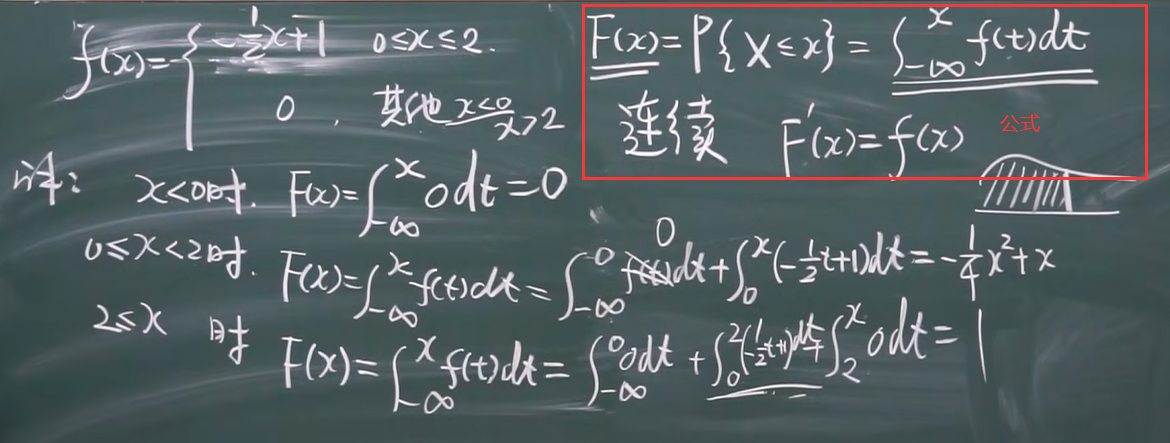 f(x)= { -1/2x+1 0≤x≤2.
0 , 其他 x<0 x>2
F(x)=P{X≤x}=∫_{-∞}^{x} f(t)dt
连续 F'(x)=f(x) 公式
x<0时. F(x)=∫_{-∞}^{x} 0dt=0
0≤x<2时. F(x)=∫_{-∞}^{x} f(t)dt=∫_{-∞}^{0} 0dt+∫_{0}^{x}(-1/2t+1)dt=-1/4x²+x
2≤x 时 F(x)=∫_{-∞}^{x} f(t)dt=∫_{-∞}^{0} 0dt+∫_{0}^{2}(-1/2t+1)dt+∫_{2}^{x} 0dt=1